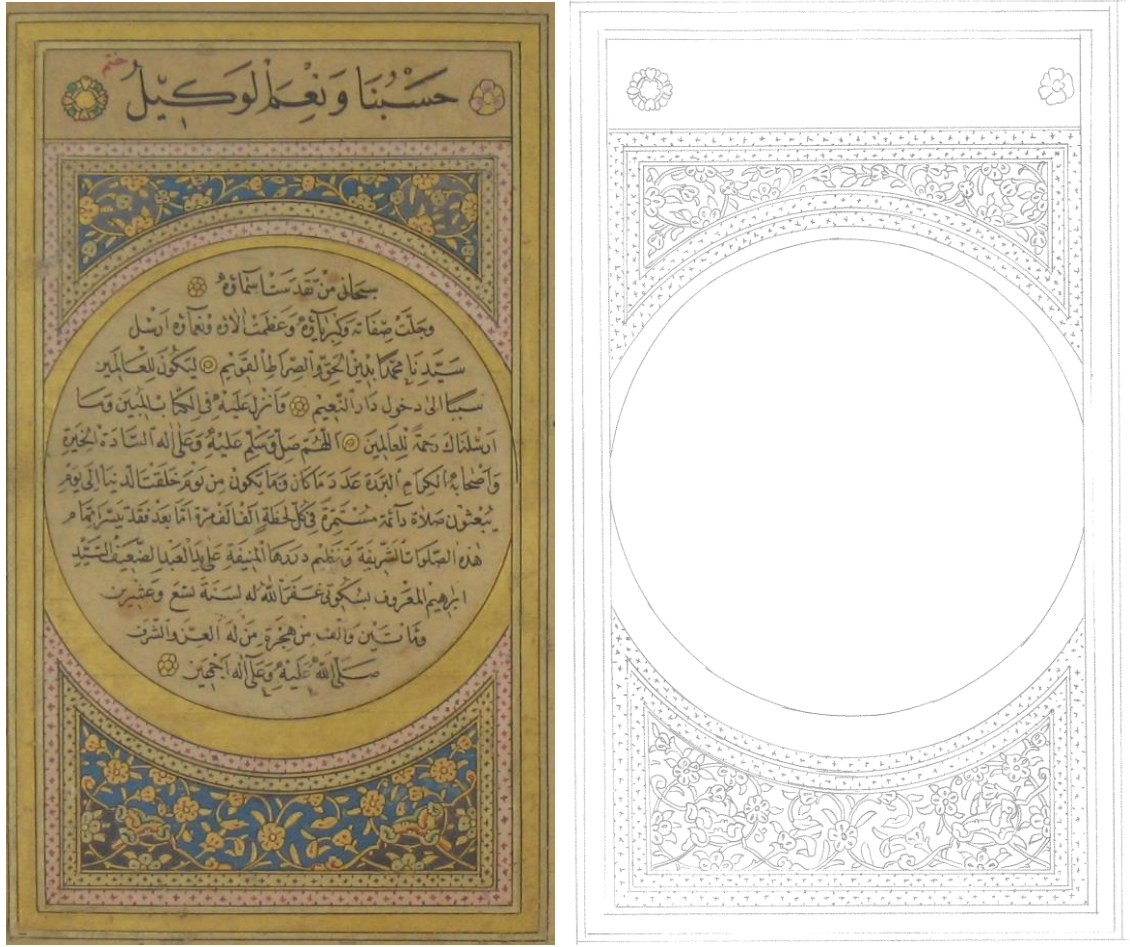 حَسْبُنَا وَنِعْمَ لوَكِيلُ
ختم
سبحانى من تقدست اسماؤه
وجلت صفاته وكبرياؤه وعظمت الاؤه ونعماؤه ارسل
سيدنا محمدا بدين الحق والصراط القويم ليكون للعالمين
سببا الى دخول دار النعيم وانزل عليه فى الكتاب المبين وما
ارسلناك رحمة للعالمين اللهم صل وسلم عليه وعلى اله السادة الخيرة
واصحابه الكرام البررة عدد ما كان وما يكون من يوم خلقت الدنيا الى يوم
يبعثون صلاة دائمة مستمرة فى كل لحظة الف الف مرة اما بعد فقد يسر اتمام
هذه الصلوات الشريفة وتنظيم دررها المنيفة على يد العبد الضعيف السيد
ابراهيم المعروف بسكوتى غفر الله له لسنة تسع وعشرين
ومأتين والف من هجرة من له العز والشرف
صلى الله عليه وعلى اله اجمعين